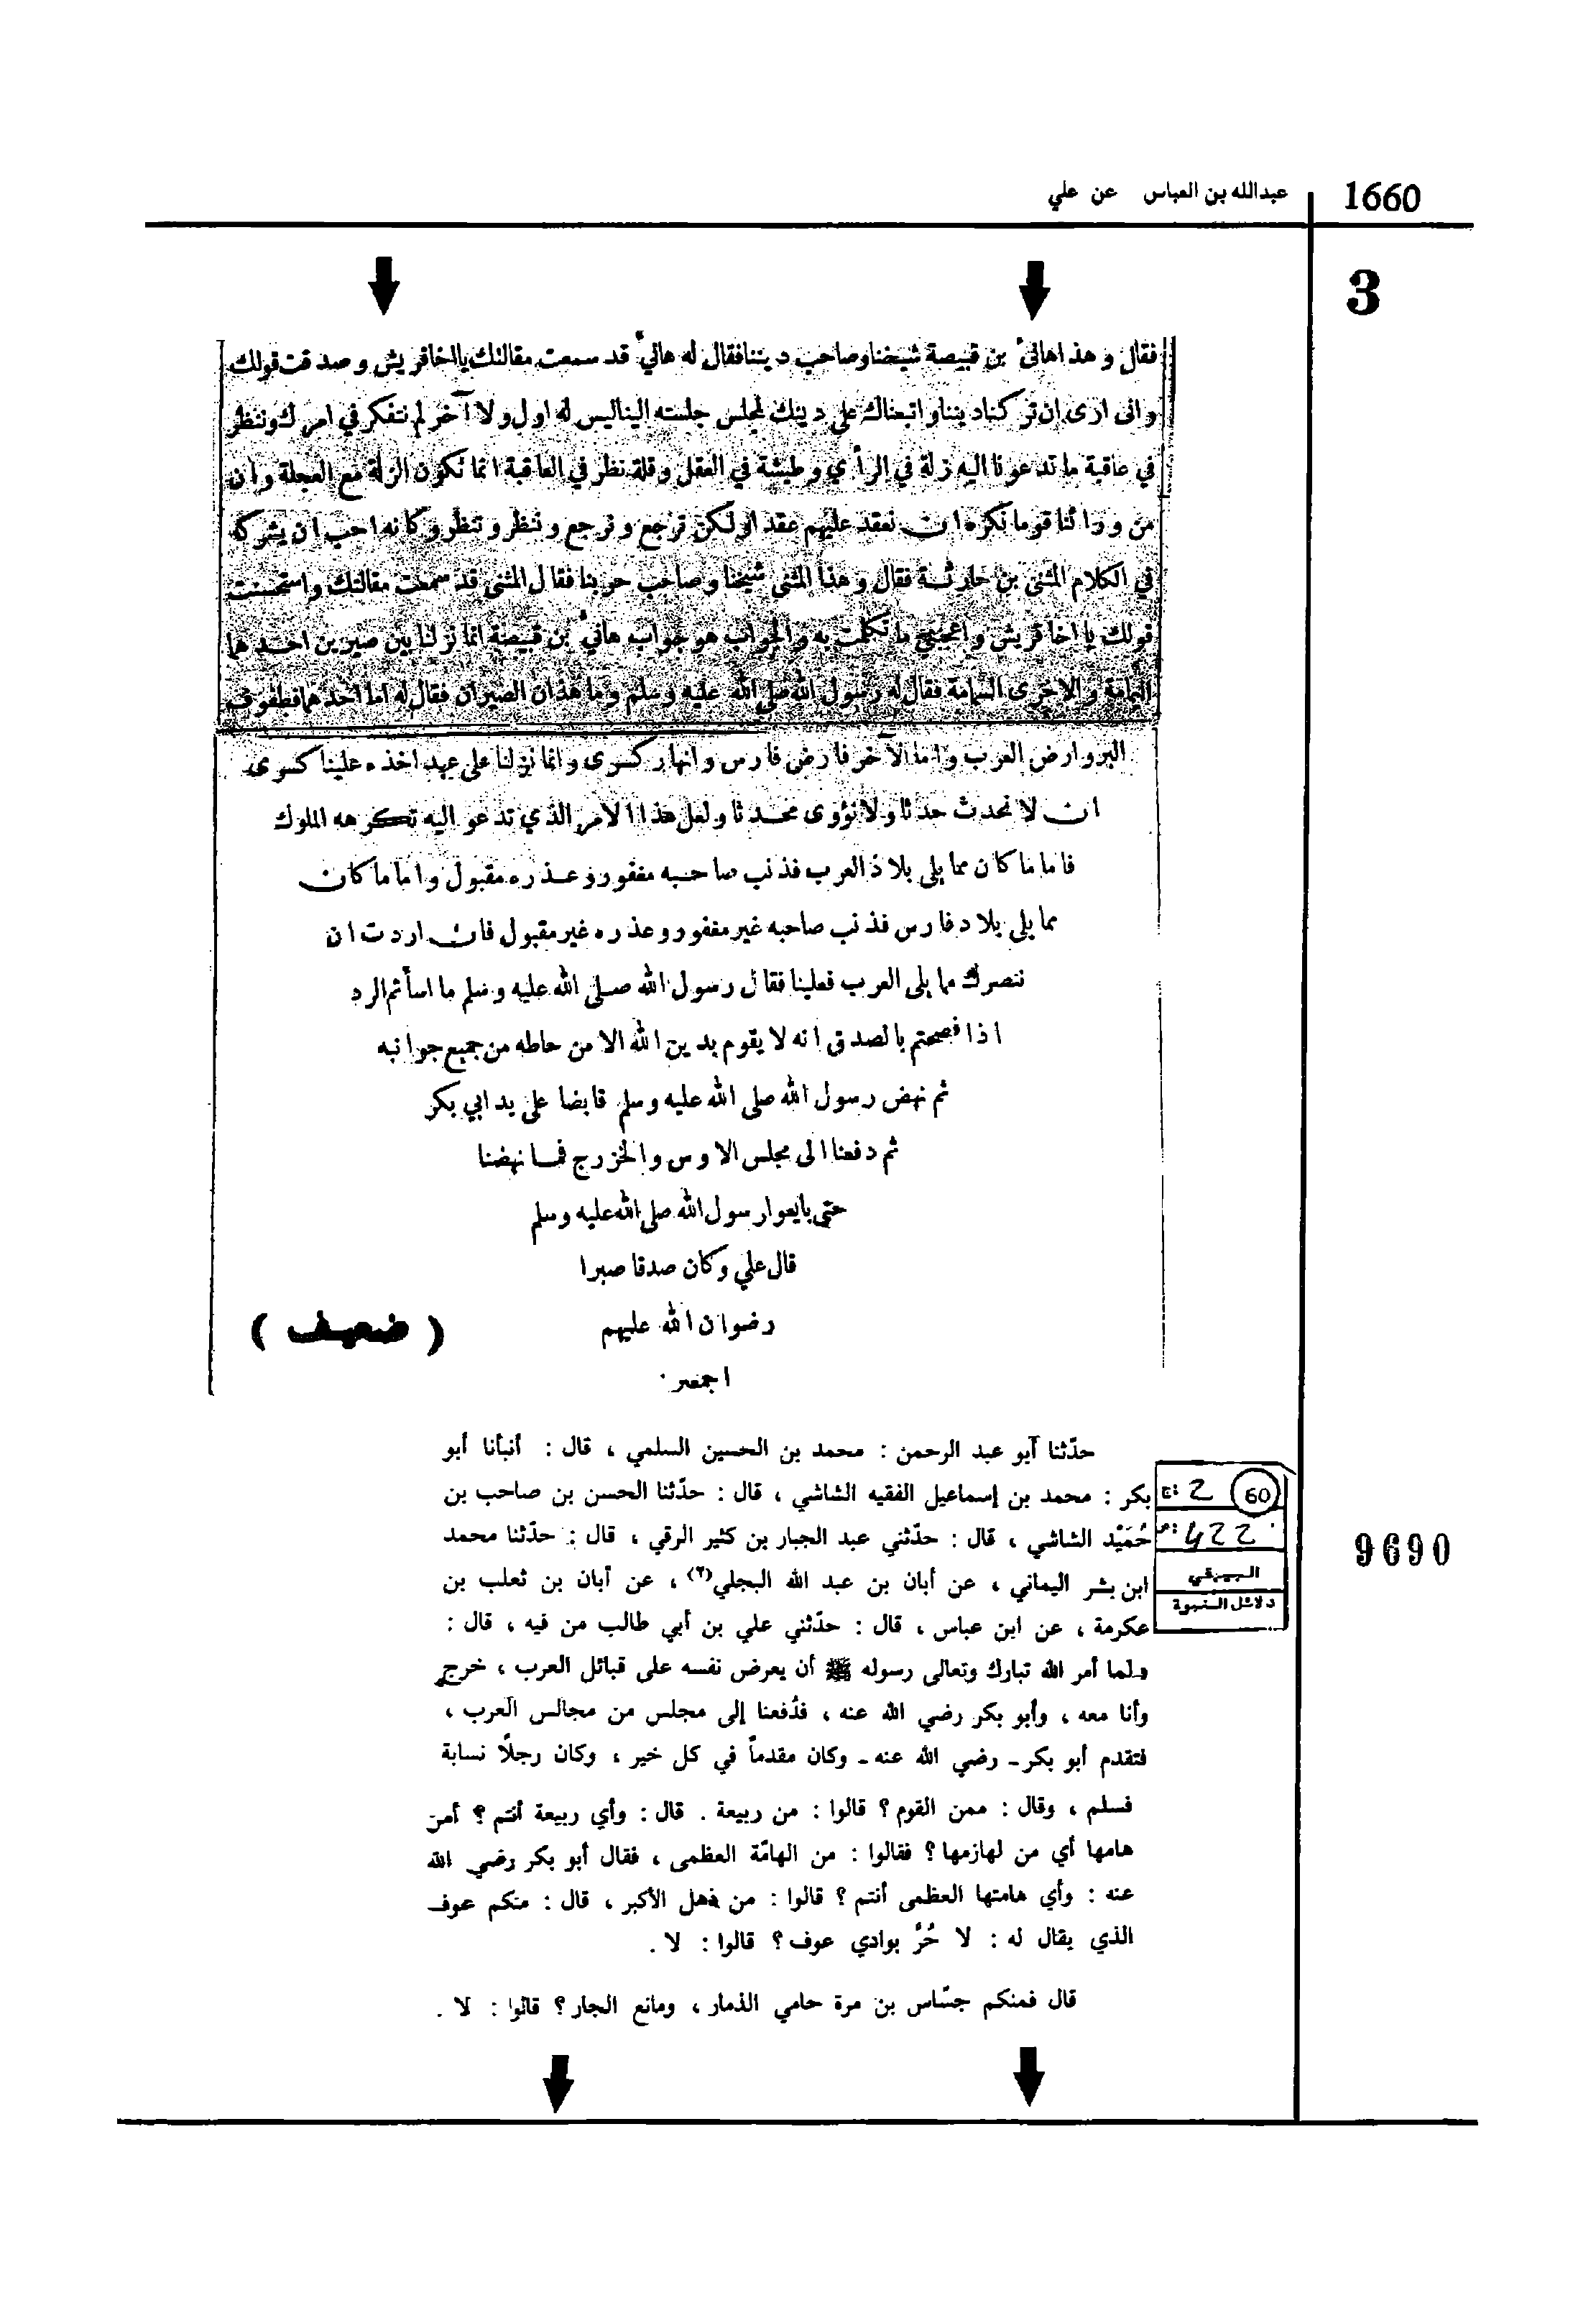 1660
عبدالله بن العباس عن علي
3
فقال وهذا هانئ بن قبيصة شيخنا وصاحب ديننا فقال له هانئ قد سمعت مقالتك يا اخا قريش وصدقت قولك
وانى ارى ان تركنا ديننا واتبعناك على دينك لمجلس جلسته الينا ليس له اول ولا آخر لم نتفكر في امرك وننظر
في عاقبة ما تدعونا اليه زلة في الرأي وطيشة في العقل وقلة نظر في العاقبة انما تكون الزلة مع العجلة وان
من ورائنا قوما نكره ان نعقد عليهم عقدا ولكن ترجع ونرجع وتنظر وننظر وكانه احب ان يشركه
في الكلام المثنى بن حارثة فقال وهذا المثنى شيخنا وصاحب حربنا فقال المثنى قد سمعت مقالتك واستحسنت
قولك يا اخا قريش واعجبني ما تكلمت به والجواب هو جواب هانئ بن قبيصة انما نزلنا بين صيرين احدهما
اليمامة والاخرى السمامة فقال له رسول الله صلى الله عليه وسلم وما هذان الصيران فقال له اما احدهما فطفوف
البر وارض العرب واما الآخر فارض فارس وانهار كسرى وانما نزلنا على عهد اخذه علينا كسرى
ان لا نحدث حدثا ولا نؤوى محدثا ولعل هذا الامر الذي تدعو اليه تكرهه الملوك
فاما ما كان مما يلى بلاد العرب فذنب صاحبه مغفور وعذره مقبول واما ما كان
مما يلى بلاد فارس فذنب صاحبه غير مغفور وعذره غير مقبول فان اردت ان
ننصرك مما يلى العرب فعلينا فقال رسول الله صلى الله عليه وسلم ما اسأتم الرد
اذا فصحتم بالصدق انه لا يقوم بدين الله الا من حاطه من جميع جوانبه
ثم نهض رسول الله صلى الله عليه وسلم قابضا على يد ابي بكر
ثم دفعنا الى مجلس الاوس والخزرج فما نهضنا
حتى بايعوا رسول الله صلى الله عليه وسلم
قال علي وكان صدقا صبرا
رضوان الله عليهم
اجمعين
( ضعيف )
حدّثنا أبو عبد الرحمن : محمد بن الحسين السلمي ، قال : أنبأنا أبو
بكر : محمد بن إسماعيل الفقيه الشاشي ، قال : حدّثنا الحسن بن صاحب بن
حُمَيْد الشاشي ، قال : حدّثني عبد الجبار بن كثير الرقي ، قال : حدّثنا محمد
ابن بشر اليماني ، عن أبان بن عبد الله البجلي(٢) ، عن أبان بن ثعلب بن
عكرمة ، عن ابن عباس ، قال : حدّثني علي بن أبي طالب من فيه ، قال :
ولما أمر الله تبارك وتعالى رسوله ﷺ أن يعرض نفسه على قبائل العرب ، خرج
وأنا معه ، وأبو بكر رضي الله عنه ، فدُفعنا إلى مجلس من مجالس العرب ،
فتقدم أبو بكر - رضي الله عنه - وكان مقدماً في كل خير ، وكان رجلاً نسابة
فسلم ، وقال : ممن القوم ؟ قالوا : من ربيعة . قال : وأي ربيعة أنتم ؟ أمن
هامها أي من لهازمها ؟ فقالوا : من الهامّة العظمى ، فقال أبو بكر رضي الله
عنه : وأي هامتها العظمى أنتم ؟ قالوا : من ذهل الأكبر ، قال : منكم عوف
الذي يقال له : لا حُرَّ بوادي عوف ؟ قالوا : لا .
قال فمنكم جسّاس بن مرة حامي الذمار ، ومانع الجار ؟ قالوا : لا .
60 ج: 2
ص: 422
البيهقي
دلائل النبوة
9690